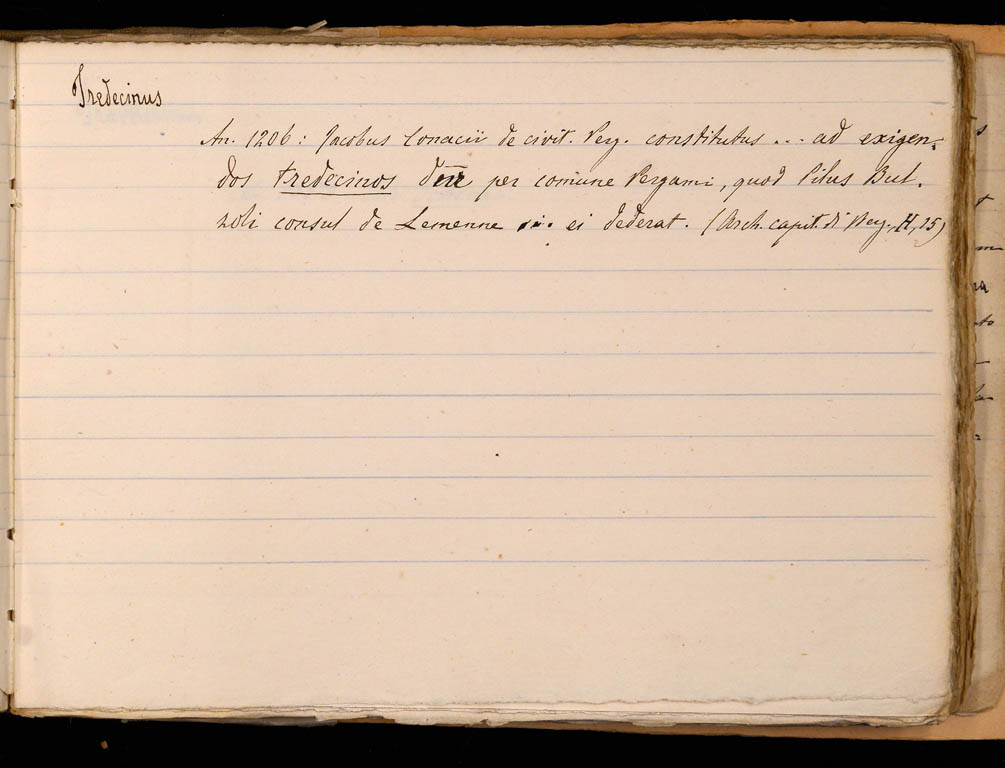 Tredecinus
An. 1206: Jacobus Conacii de civit. Perg. constitutus ... ad exigen-
dos tredecinos per comune Pergami, quod Pilus Bul.
zoli consul de Lemenne ei dederat. (Arch. capit. di Berg., H, 25)